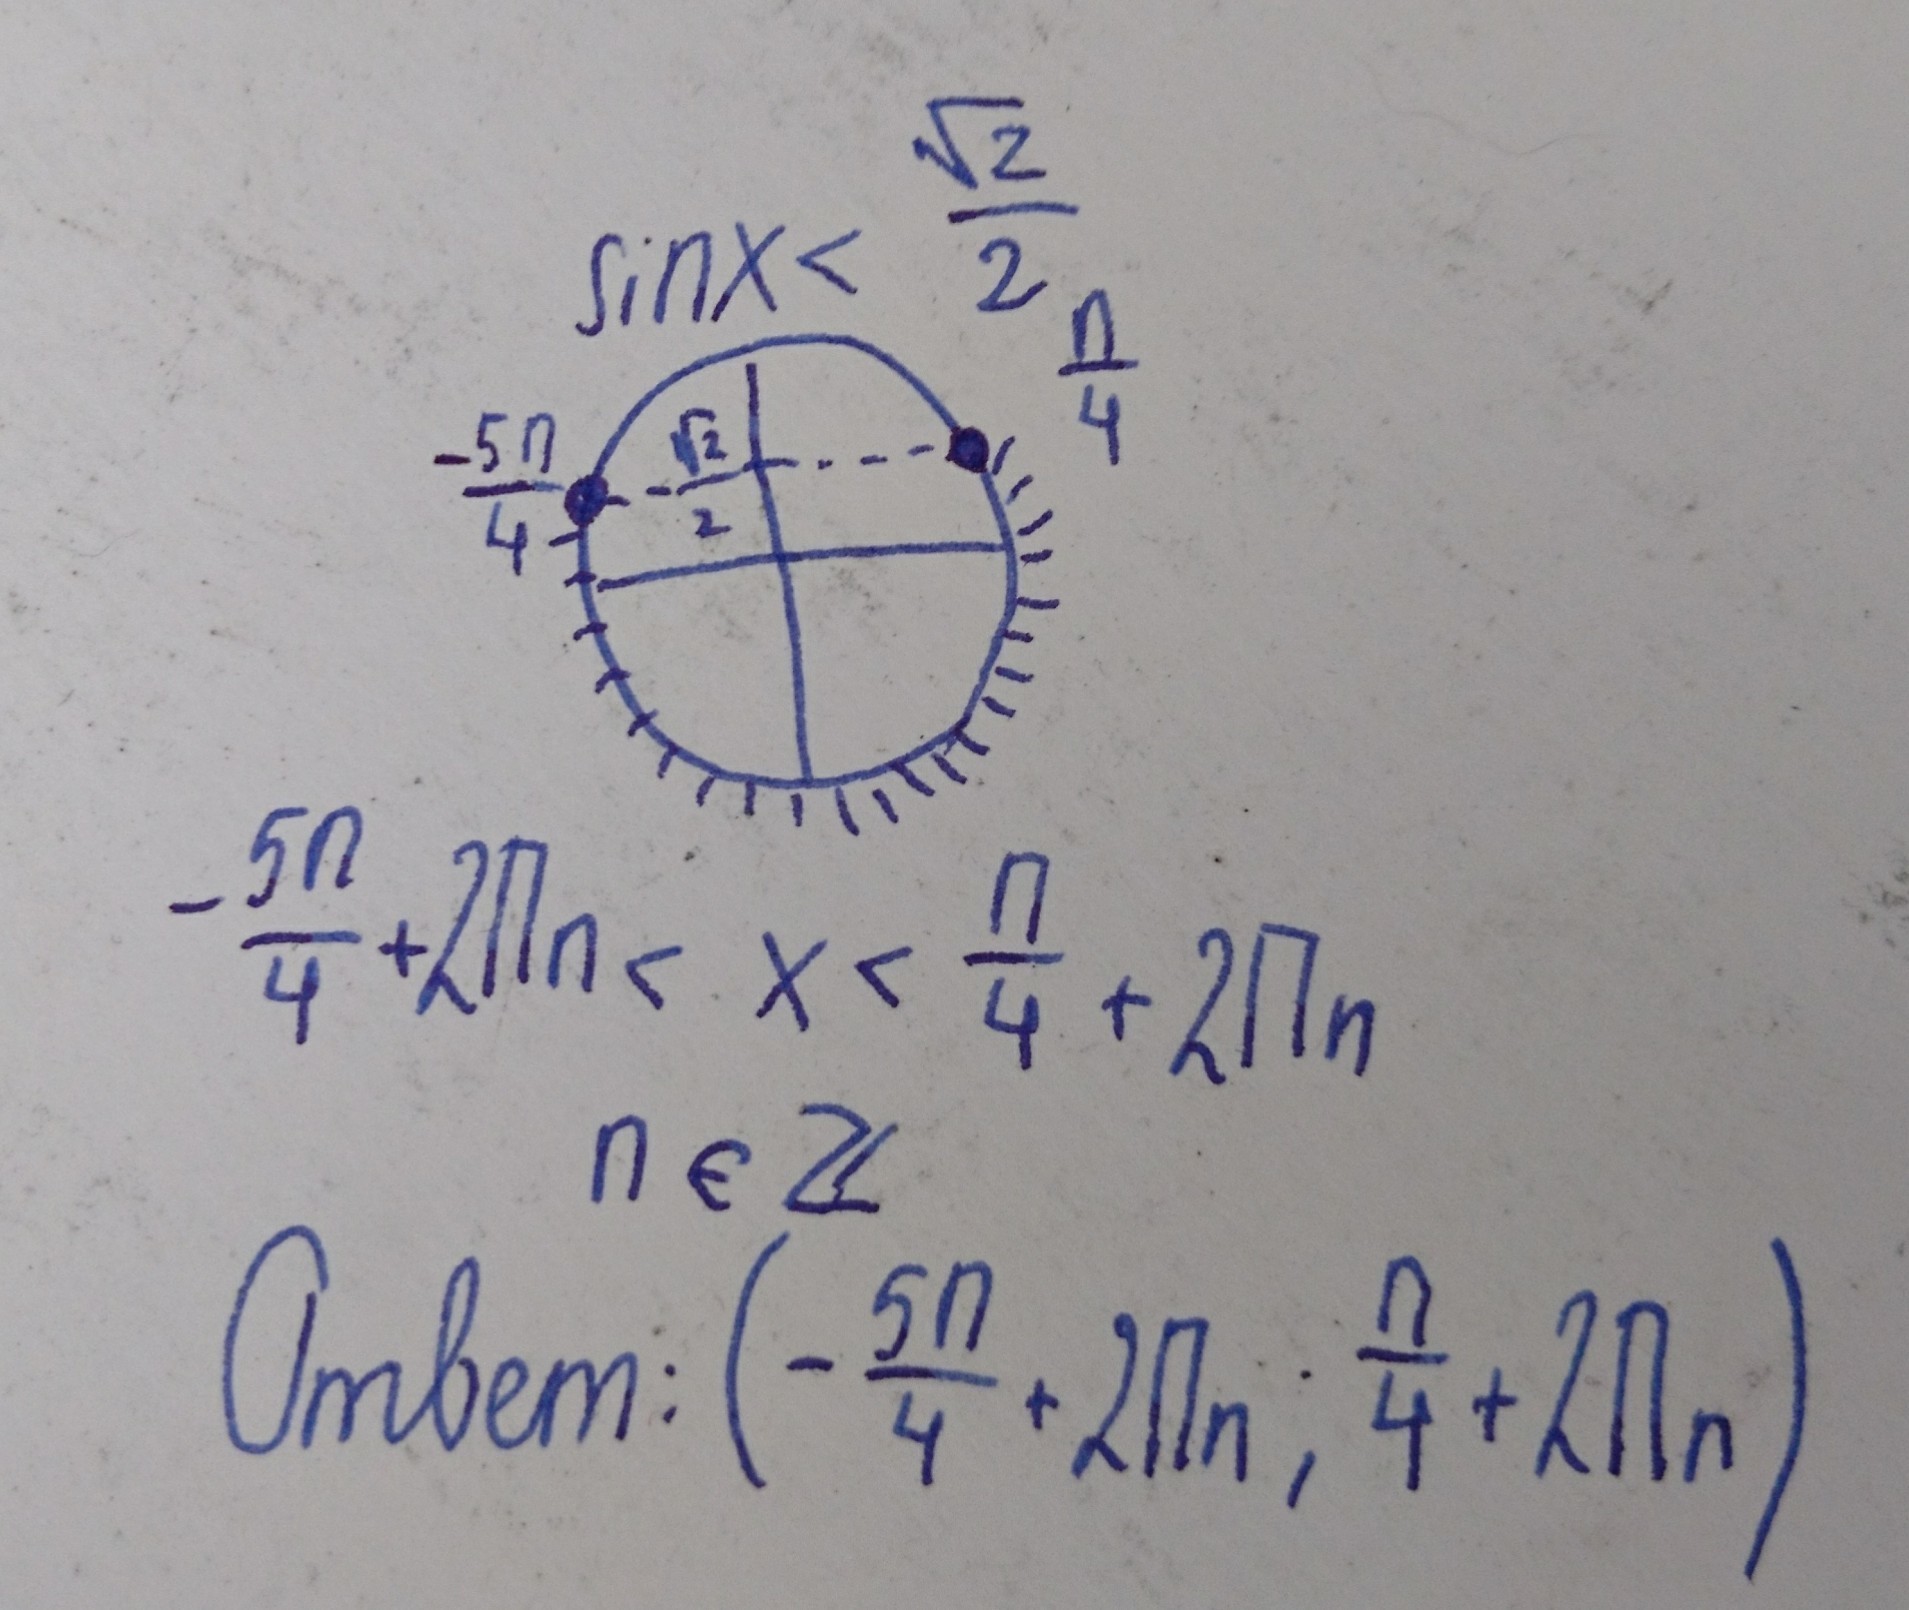 sinx < √2/2
π/4
-5π/4
√2/2
-5π/4 + 2πn < x < π/4 + 2πn
n ∈ ℤ
Ответ: (-5π/4 + 2πn; π/4 + 2πn)